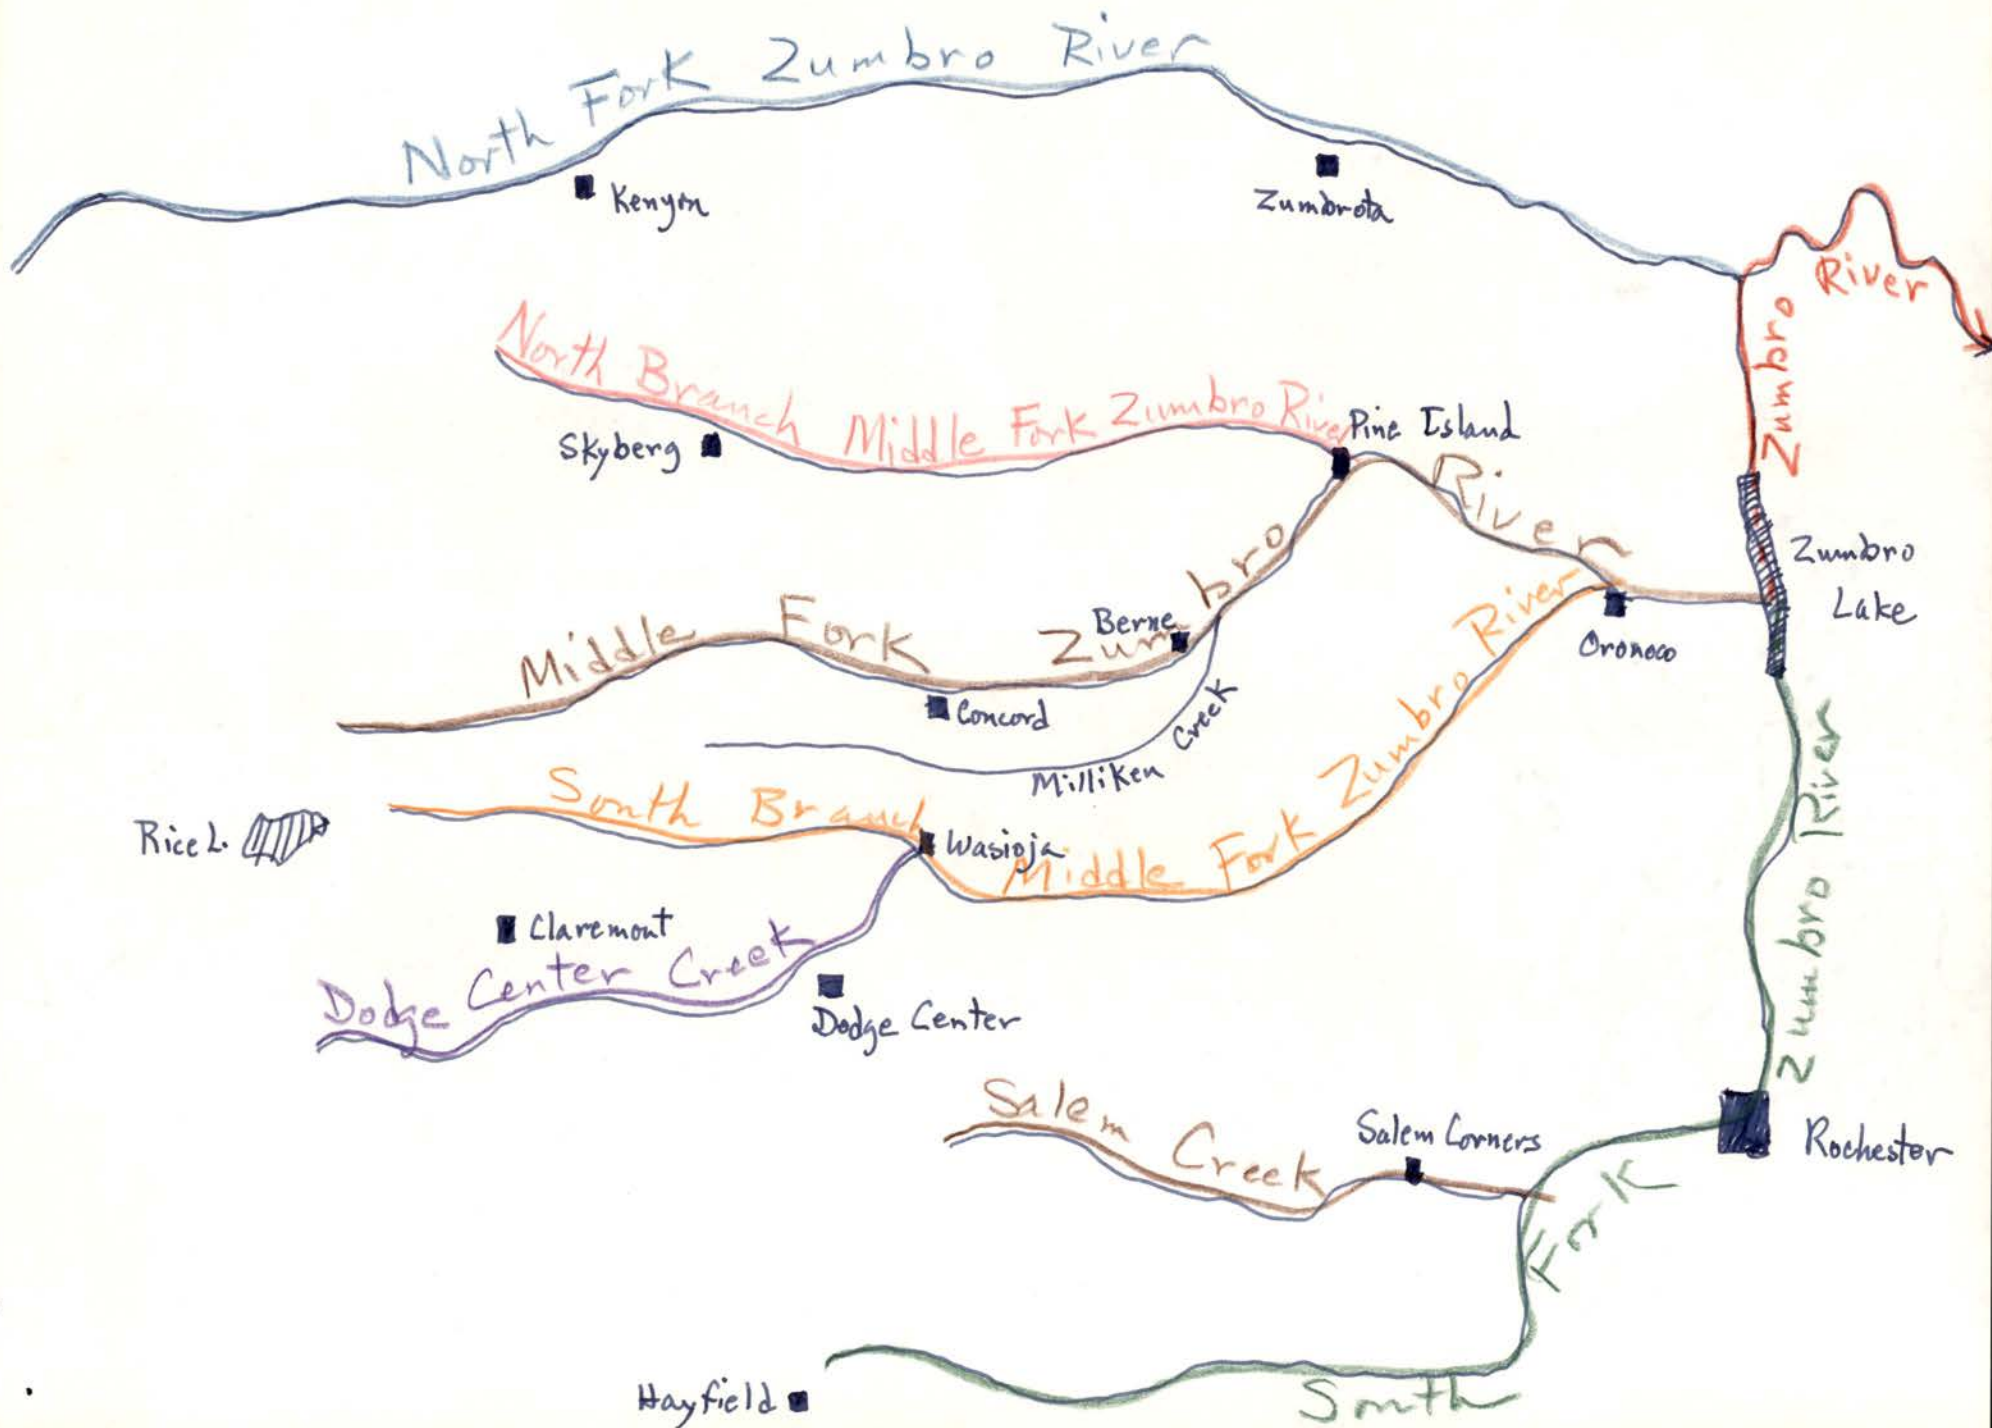 North Fork Zumbro River
Kenyon
Zumbrota
Zumbro River
North Branch Middle Fork Zumbro River
Skyberg
Pine Island
Middle Fork Zumbro River
Zumbro
Lake
Berne
Oronoco
Concord
Milliken Creek
South Branch Middle Fork Zumbro River
Rice L.
Wasioja
Claremont
Dodge Center Creek
Dodge Center
Salem Creek
Salem Corners
Rochester
South Fork Zumbro River
Hayfield